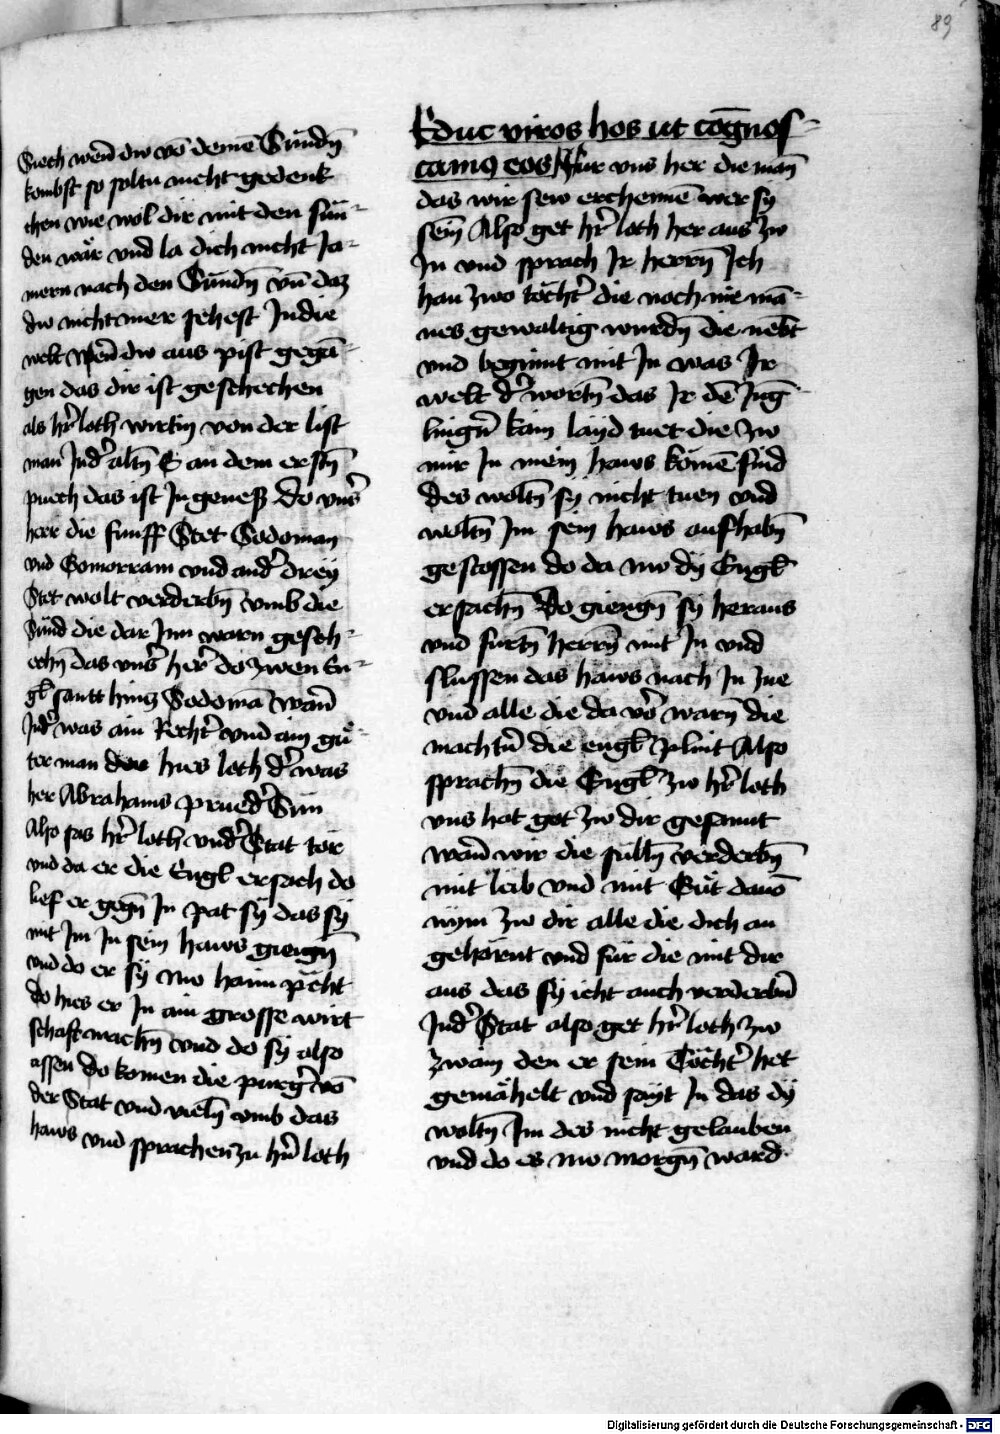 89
Siech wen̄ dw vō demē Sündn̄
kombst so soltu nicht gedenk
chen wie wol dir mit den sün-
den wär vnd la dich nicht Ja-
mern nach den Sündn̄ vn̄ daz
dw nicht mer sehest In die
welt wen̄ dw aus pist gegā-
gen das dir ist geschechen
als hr̄ loth wirtin von der list
man Ind' altn̄ E an dem erstn̄
puech das ist In genesz Do vns'
herr die funff Stet Sodoman
vnd Gomorram vnd and' dreÿ
Stet wolt verderbn̄ vmb die
Sünd die dar Inn warn gesch-
echn̄ das vns' her' do zwen En-
gl santt hinz Sodomā wan̄
Ind' was ain Recht' vnd ain gu-
ter man hies loth d' was
her Abrahams prued' Sun
Also sas hr̄ loth vnd' Stat tor
vnd da er die Engl ersach do
lief er gegn̄ In pat sÿ das sÿ
mit Im In sein haws giengn̄
vnd do er sÿ nw haim pcht
do hies er In ain grosse wirt
schaft machn̄ vnd do sÿ also
assen do komen die purg' vō
der Stat vnd vieln̄ vmb das
haws vnd sprachen zu hn̄ loth
Educ viros hos ut cōgnos-
camꝰ eos für vns her die man̄
das wir sew erchennē wer sy
sein̄ Also get hr̄ loth her aus zw
In vnd sprach Ir herrn̄ Ich
han zwo töcht' die noch nie mā-
nes gewaltig wurdn̄ die nēbt
vnd begint mit In was Ir
welt d' wortn̄ das Ir dē Jūg
lingn̄ kain laÿd tuet die zw
mir In mein haws komē sind
des woltn̄ sÿ nicht tuen vnd
woltn̄ Im sein haws aufhabn̄
gestossen do da nw dÿ Engl
ersachn̄ Do giengn̄ sÿ heraus
vnd furtn̄ herrn̄ mit In vnd
slussen das haws nach In zue
vnd alle die da vō warn̄ die
machtn̄ die engl plint Also
sprachn̄ die Engl zw hr̄ loth
vns hat got zw dir gesannt
wan̄ wir die sülln̄ verderbn̄
mit leib vnd mit Gut dauō
nym zw dir alle die dich an
gehörnt vnd für die mit dir
aus das sÿ icht auch verderbn̄
Ind' Stat also get hr̄ loth zw
zwain den er sein Töcht' het
gemähelt vnd sayt In das dÿ
woltn̄ Im des nicht gelauben
vnd do es nw morgn̄ ward
Digitalisierung gefördert durch die Deutsche Forschungsgemeinschaft - DFG